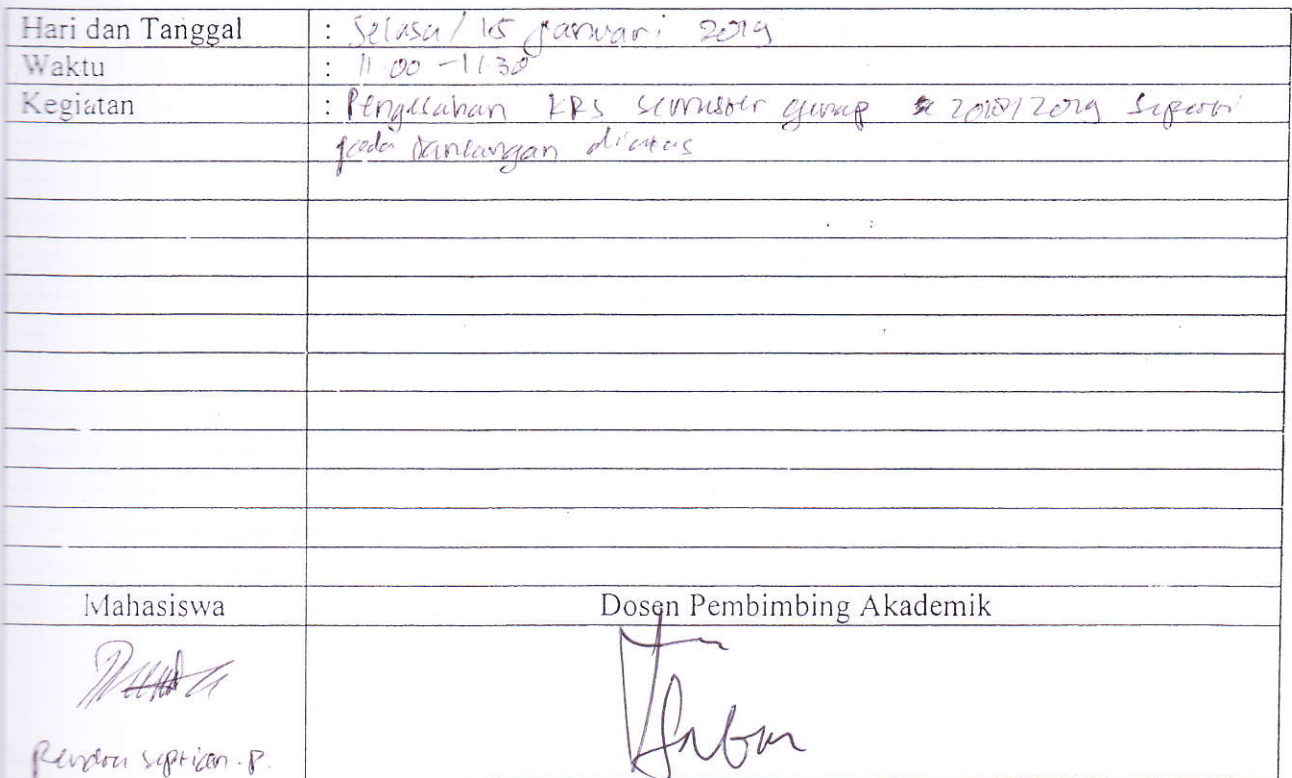 Hari dan Tanggal : Selasa / 15 Januari 2019
Waktu : 11.00 - 11.30
Kegiatan : Pengesahan KRS semester genap 2018/2019 seperti
pada rancangan diatas
Mahasiswa Dosen Pembimbing Akademik
Rendra septian.P.